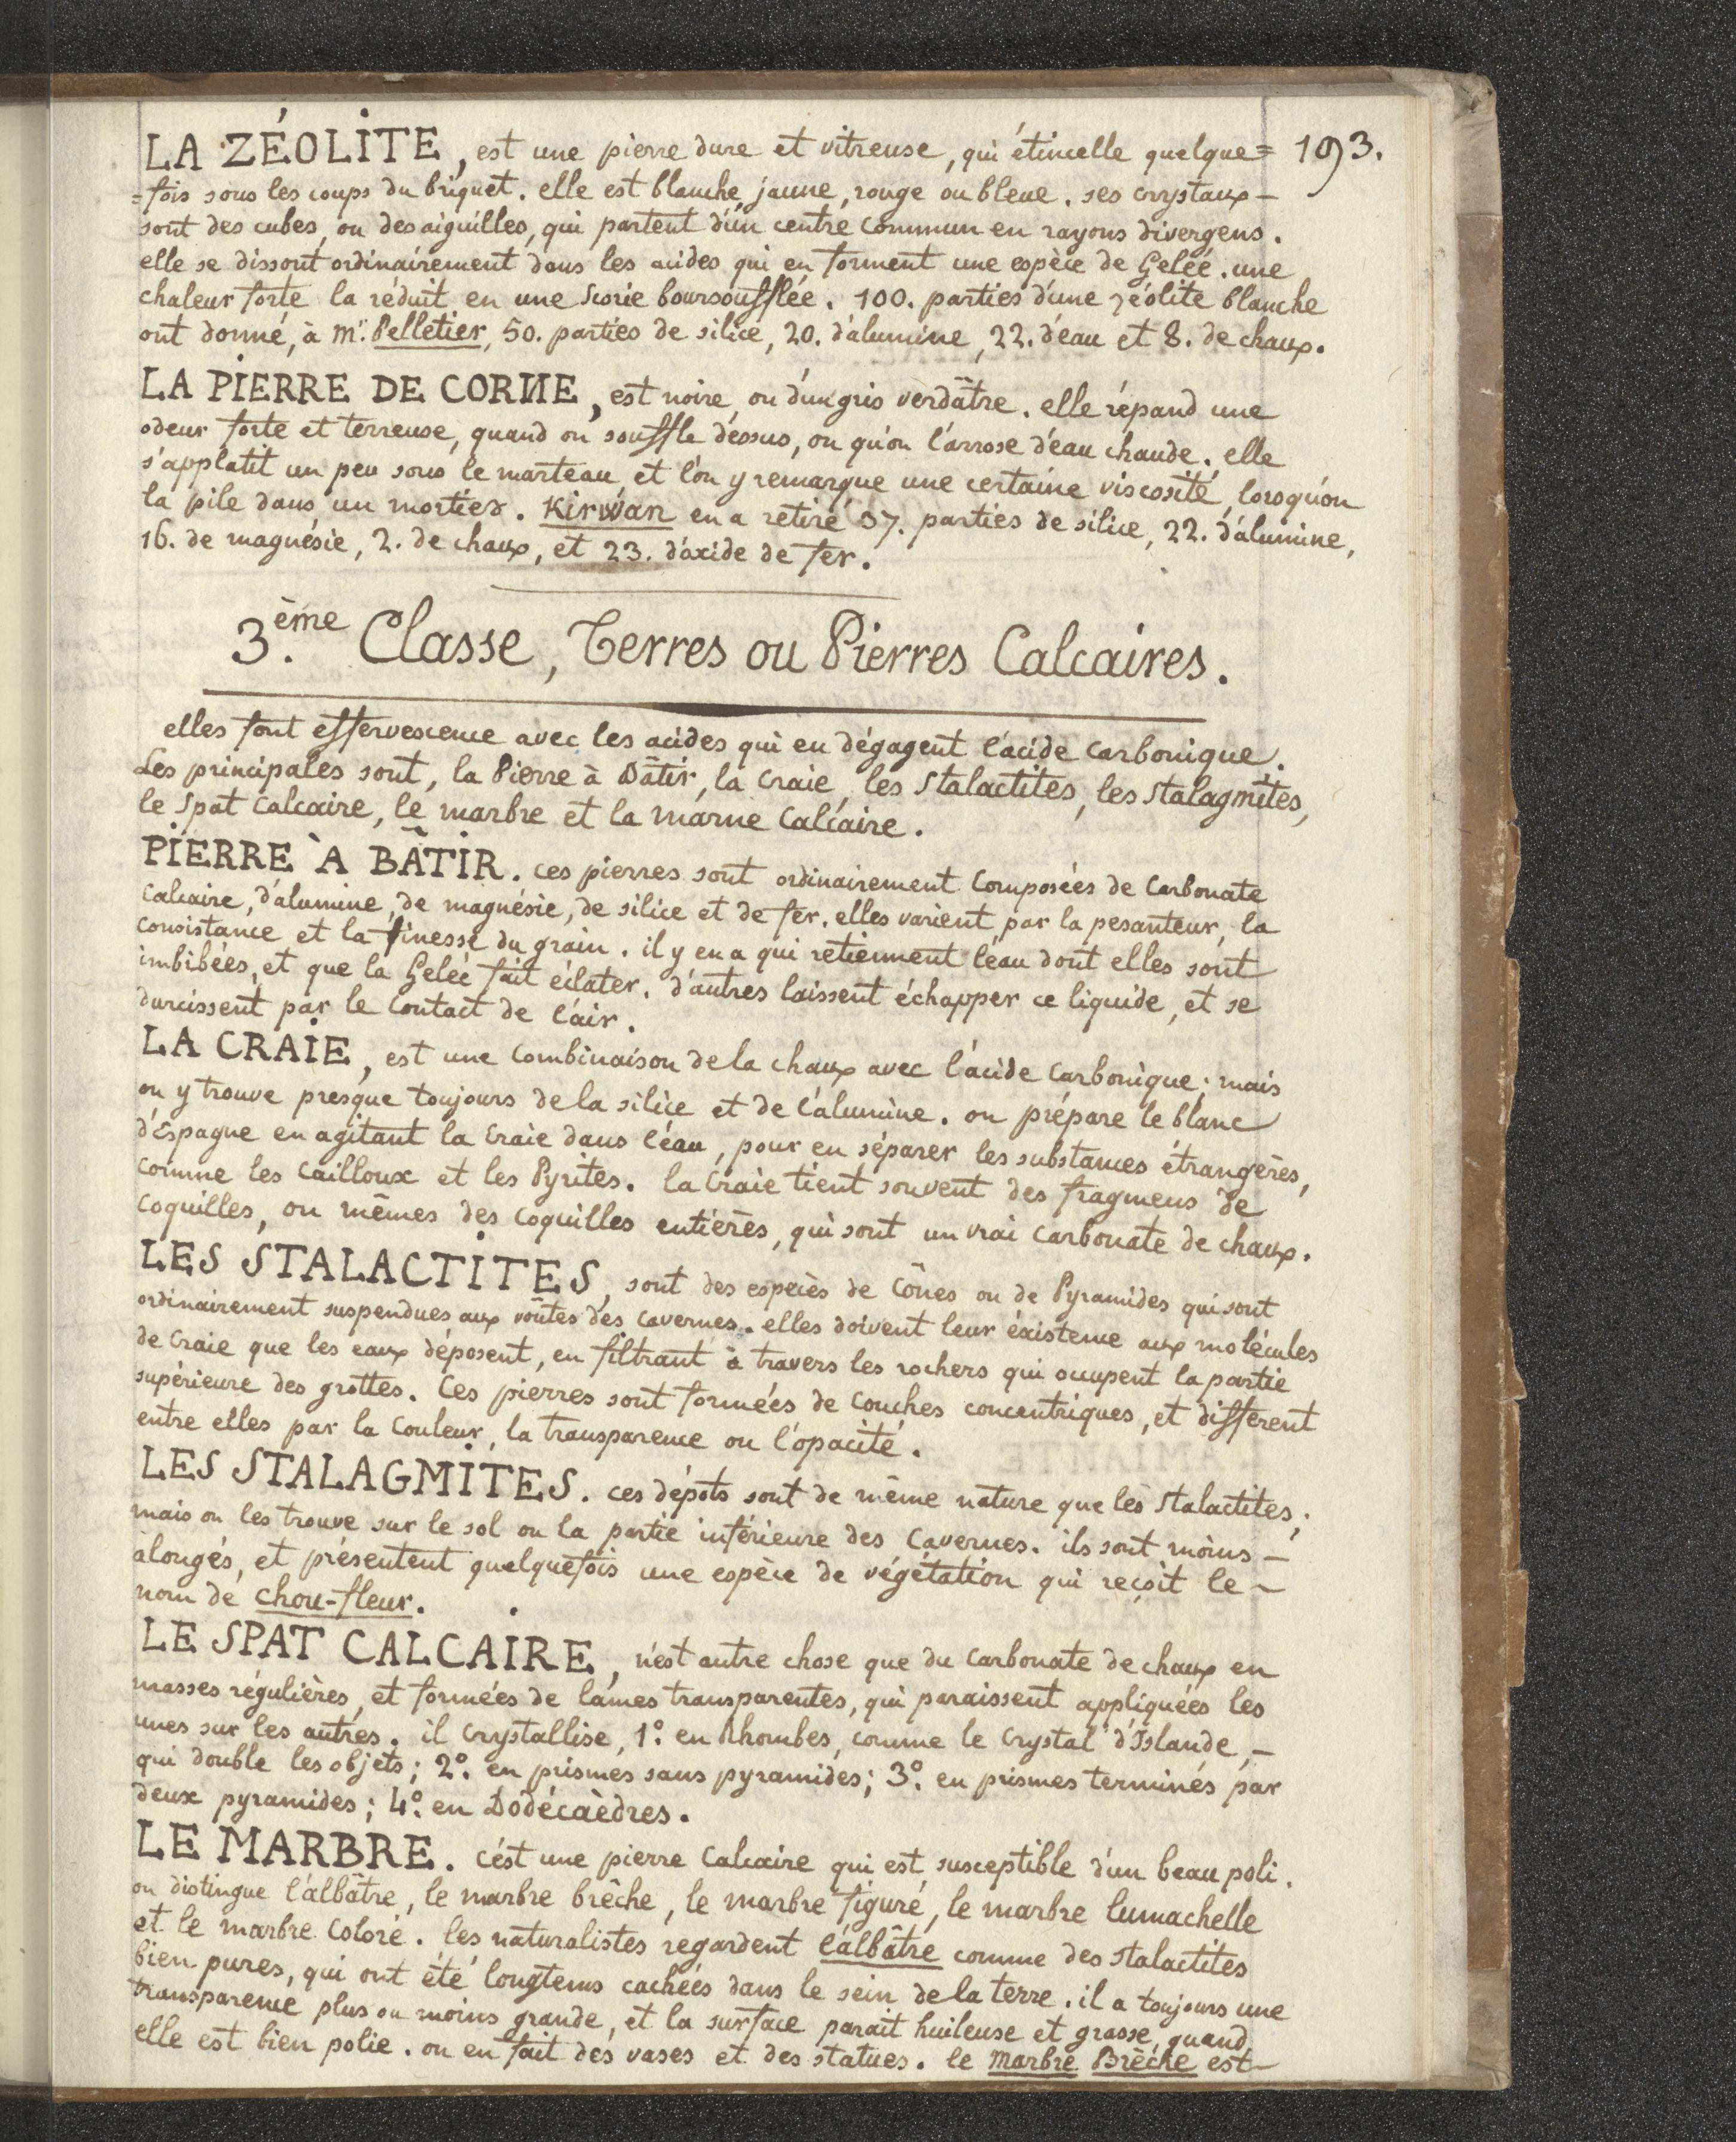 LA ZÉOLITE, est une pierre dure et vitreuse, qui étincelle quelque= 193.
=fois sous les coups du briquet. elle est blanche, jaune, rouge ou bleue. ses crystaux -
sont des cubes, ou des aiguilles, qui partent d'un centre commun en rayons divergens.
elle se dissout ordinairement dans les acides qui en forment une espèce de Gelée. une
chaleur forte la réduit en une Scorie boursoufflée. 100. parties d'une zéolite blanche
ont donné, à Mr. Pelletier, 50. parties de silice, 20. d'alumine, 22. d'eau et 8. de chaux.
LA PIERRE DE CORNE, est noire, ou d'un gris verdâtre. elle répand une
odeur forte et terreuse, quand on souffle dessus, ou qu'on l'arrose d'eau chaude. elle
s'applatit un peu sous le marteau, et l'on y remarque une certaine viscosité, lorsqu'on
la pile dans un mortier. Kirwan en a retiré 37. parties de silice, 22. d'alumine,
16. de magnésie, 2. de chaux, et 23. d'oxide de fer.
3.ème Classe, Terres ou Pierres Calcaires.
elles font effervescence avec les acides qui en dégagent l'acide carbonique.
Les principales sont, la Pierre à Bâtir, la craie, les Stalactites, les Stalagmites,
le Spat Calcaire, le marbre et la marne Calcaire.
PIERRE À BÂTIR. ces pierres sont ordinairement Composées de Carbonate
calcaire, d'alumine, de magnésie, de silice et de fer. elles varient par la pesanteur, la
consistance et la finesse du grain. il y en a qui retiennent l'eau dont elles sont
imbibées, et que la Gelée fait éclater. d'autres laissent échapper ce liquide, et se
durcissent par le Contact de l'air.
LA CRAIE, est une Combinaison de la chaux avec l'acide Carbonique; mais
on y trouve presque toujours de la silice et de l'alumine. on prépare le blanc
d'Espagne en agitant la Craie dans l'eau, pour en séparer les substances étrangères,
comme les Cailloux et les Pyrites. la Craie tient souvent des fragmens de
Coquilles, ou mêmes des Coquilles entières, qui sont un vrai Carbonate de chaux.
LES STALACTITES, sont des espèces de Cônes ou de Pyramides qui sont
ordinairement suspendues aux voûtes des Cavernes. elles doivent leur éxistence aux molécules
de Craie que les eaux déposent, en filtrant à travers les rochers qui occupent la partie
supérieure des grottes. Ces pierres sont formées de Couches concentriques, et different
entre elles par la Couleur, la transparence ou l'opacité.
LES STALAGMITES. ces dépots sont de même nature que les Stalactites;
mais on les trouve sur le sol ou la partie inférieure des Cavernes. ils sont moins -
alongés, et présentent quelquefois une espèce de végétation qui reçoit le -
nom de chou-fleur.
LE SPAT CALCAIRE, n'est autre chose que du Carbonate de chaux en
masses régulières, et formées de lames transparentes, qui paraissent appliquées les
unes sur les autres. il Crystallise, 1°. en Rhombes, comme le Crystal d'Islande, -
qui double les objets; 2°. en prismes sans pyramides; 3°. en prismes terminés par
deux pyramides; 4°. en Dodécaèdres.
LE MARBRE. c'est une pierre Calcaire qui est susceptible d'un beau poli.
on distingue l'albâtre, le marbre brêche, le marbre figuré, le marbre lumachelle
et le marbre Coloré. les naturalistes regardent l'albâtre comme des Stalactites
bien pures, qui ont été longtems cachées dans le sein de la terre. il a toujours une
transparence plus ou moins grande, et la surface parait huileuse et grasse, quand
elle est bien polie. on en fait des vases et des statues. le marbre Brêche est -